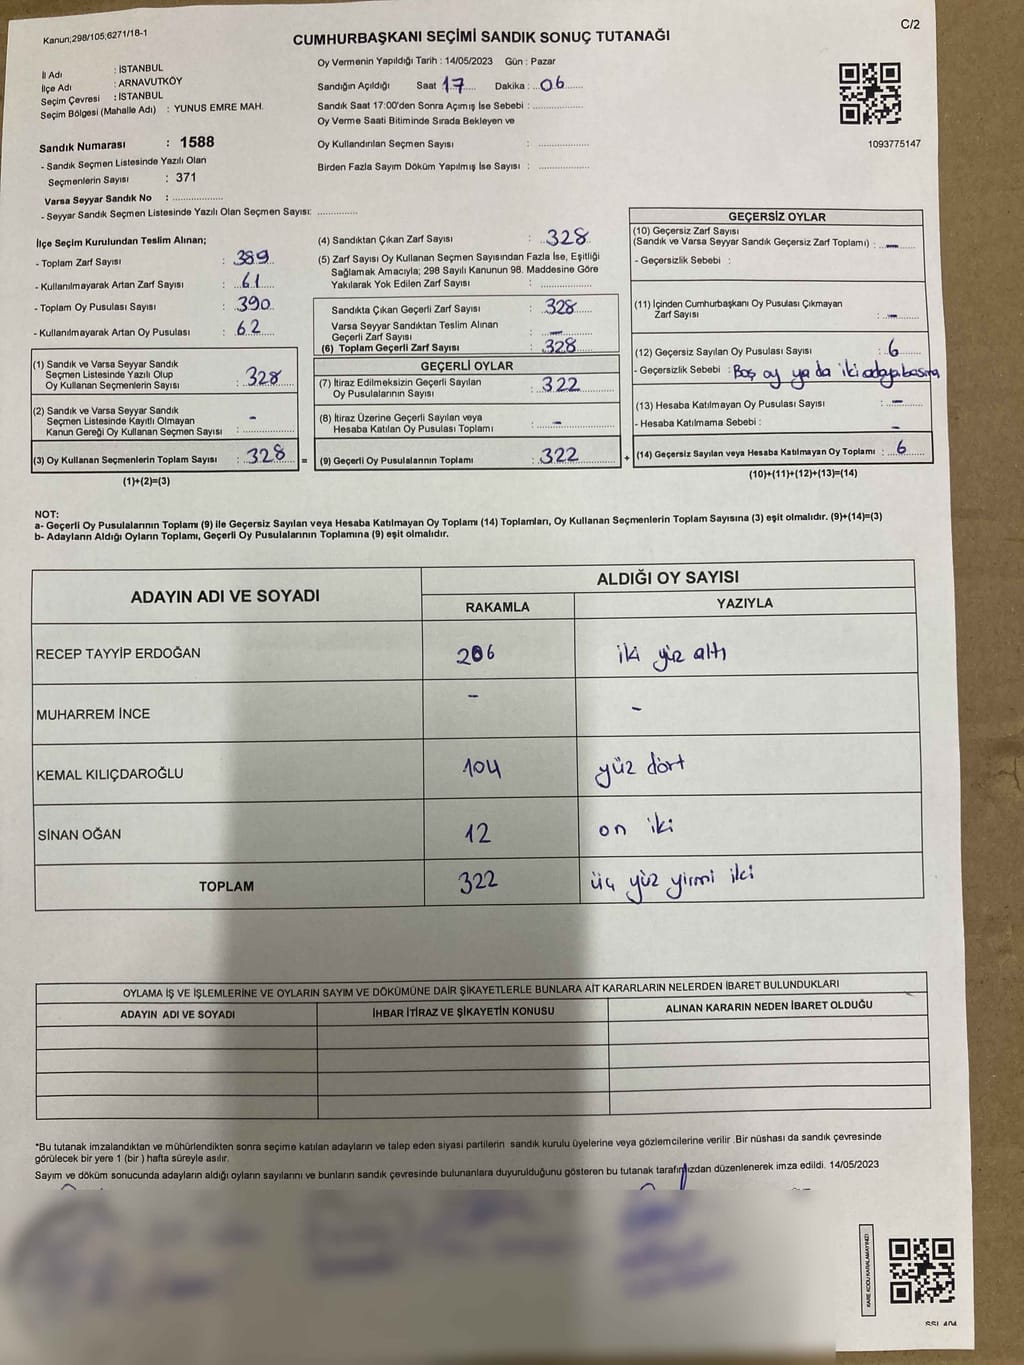 Kanun;298/105;6271/18-1
C/2
CUMHURBAŞKANI SEÇİMİ SANDIK SONUÇ TUTANAĞI
İl Adı : İSTANBUL
İlçe Adı : ARNAVUTKÖY
Seçim Çevresi : İSTANBUL
Seçim Bölgesi (Mahalle Adı) : YUNUS EMRE MAH.
Sandık Numarası : 1588
- Sandık Seçmen Listesinde Yazılı Olan
Seçmenlerin Sayısı : 371
Varsa Seyyar Sandık No : ....................
- Seyyar Sandık Seçmen Listesinde Yazılı Olan Seçmen Sayısı: ................
Oy Vermenin Yapıldığı Tarih : 14/05/2023 Gün : Pazar
Sandığın Açıldığı Saat 17 Dakika : 06
Sandık Saat 17:00'den Sonra Açımış İse Sebebi : ....................
Oy Verme Saati Bitiminde Sırada Bekleyen ve
Oy Kullandırılan Seçmen Sayısı : ....................
Birden Fazla Sayım Döküm Yapılmış İse Sayısı : ....................
1093775147
İlçe Seçim Kurulundan Teslim Alınan;
- Toplam Zarf Sayısı : 389
- Kullanılmayarak Artan Zarf Sayısı : 61
- Toplam Oy Pusulası Sayısı : 390
- Kullanılmayarak Artan Oy Pusulası : 62
(1) Sandık ve Varsa Seyyar Sandık
Seçmen Listesinde Yazılı Olup
Oy Kullanan Seçmenlerin Sayısı : 328
(2) Sandık ve Varsa Seyyar Sandık
Seçmen Listesinde Kayıtlı Olmayan
Kanun Gereği Oy Kullanan Seçmen Sayısı : -
(3) Oy Kullanan Seçmenlerin Toplam Sayısı : 328 =
(1)+(2)=(3)
(4) Sandıktan Çıkan Zarf Sayısı : 328
(5) Zarf Sayısı Oy Kullanan Seçmen Sayısından Fazla İse, Eşitliği
Sağlamak Amacıyla; 298 Sayılı Kanunun 98. Maddesine Göre
Yakılarak Yok Edilen Zarf Sayısı : ....................
Sandıkta Çıkan Geçerli Zarf Sayısı : 328
Varsa Seyyar Sandıktan Teslim Alınan
Geçerli Zarf Sayısı : -
(6) Toplam Geçerli Zarf Sayısı : 328
GEÇERLİ OYLAR
(7) İtiraz Edilmeksizin Geçerli Sayılan
Oy Pusulalarının Sayısı : 322
(8) İtiraz Üzerine Geçerli Sayılan veya
Hesaba Katılan Oy Pusulası Toplamı : -
(9) Geçerli Oy Pusulalarının Toplamı : 322 +
GEÇERSİZ OYLAR
(10) Geçersiz Zarf Sayısı
(Sandık ve Varsa Seyyar Sandık Geçersiz Zarf Toplamı) : -
- Geçersizlik Sebebi :
(11) İçinden Cumhurbaşkanı Oy Pusulası Çıkmayan
Zarf Sayısı : -
(12) Geçersiz Sayılan Oy Pusulası Sayısı : 6
- Geçersizlik Sebebi : Boş oy ya da iki adaya basma
(13) Hesaba Katılmayan Oy Pusulası Sayısı : -
- Hesaba Katılmama Sebebi : -
(14) Geçersiz Sayılan veya Hesaba Katılmayan Oy Toplamı : 6
(10)+(11)+(12)+(13)=(14)
NOT:
a- Geçerli Oy Pusulalarının Toplamı (9) ile Geçersiz Sayılan veya Hesaba Katılmayan Oy Toplamı (14) Toplamları, Oy Kullanan Seçmenlerin Toplam Sayısına (3) eşit olmalıdır. (9)+(14)=(3)
b- Adayların Aldığı Oyların Toplamı, Geçerli Oy Pusulalarının Toplamına (9) eşit olmalıdır.
ADAYIN ADI VE SOYADI
ALDIĞI OY SAYISI
RAKAMLA YAZIYLA
RECEP TAYYİP ERDOĞAN 206 iki yüz altı
MUHARREM İNCE - -
KEMAL KILIÇDAROĞLU 104 yüz dört
SİNAN OĞAN 12 on iki
TOPLAM 322 üç yüz yirmi iki
OYLAMA İŞ VE İŞLEMLERİNE VE OYLARIN SAYIM VE DÖKÜMÜNE DAİR ŞİKAYETLERLE BUNLARA AİT KARARLARIN NELERDEN İBARET BULUNDUKLARI
ADAYIN ADI VE SOYADI İHBAR İTİRAZ VE ŞİKAYETİN KONUSU ALINAN KARARIN NEDEN İBARET OLDUĞU
*Bu tutanak imzalandıktan ve mühürlendikten sonra seçime katılan adayların ve talep eden siyasi partilerin sandık kurulu üyelerine veya gözlemcilerine verilir .Bir nüshası da sandık çevresinde
görülecek bir yere 1 (bir ) hafta süreyle asılır.
Sayım ve döküm sonucunda adayların aldığı oyların sayılarını ve bunların sandık çevresinde bulunanlara duyurulduğunu gösteren bu tutanak tarafımızdan düzenlenerek imza edildi. 14/05/2023
KARE KODU KARALAMAYINIZ!